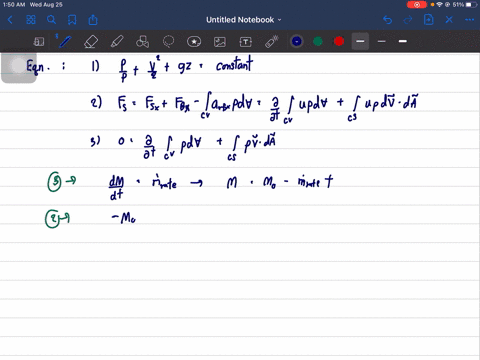 1:50 AM Wed Aug 25
51%
Untitled Notebook
Eqn : 1) P/ρ + V²/2 + gz = constant
2) Fs = Fsx + FBx - ∫cv arfx ρd∀ = ∂/∂t ∫cv uρd∀ + ∫cs uρV⃗·dA⃗
3) 0 = ∂/∂t ∫cv ρd∀ + ∫cs ρV⃗·dA⃗
③ → dM/dt = ṁrate → M = M₀ - ṁrate t
② → -M₀